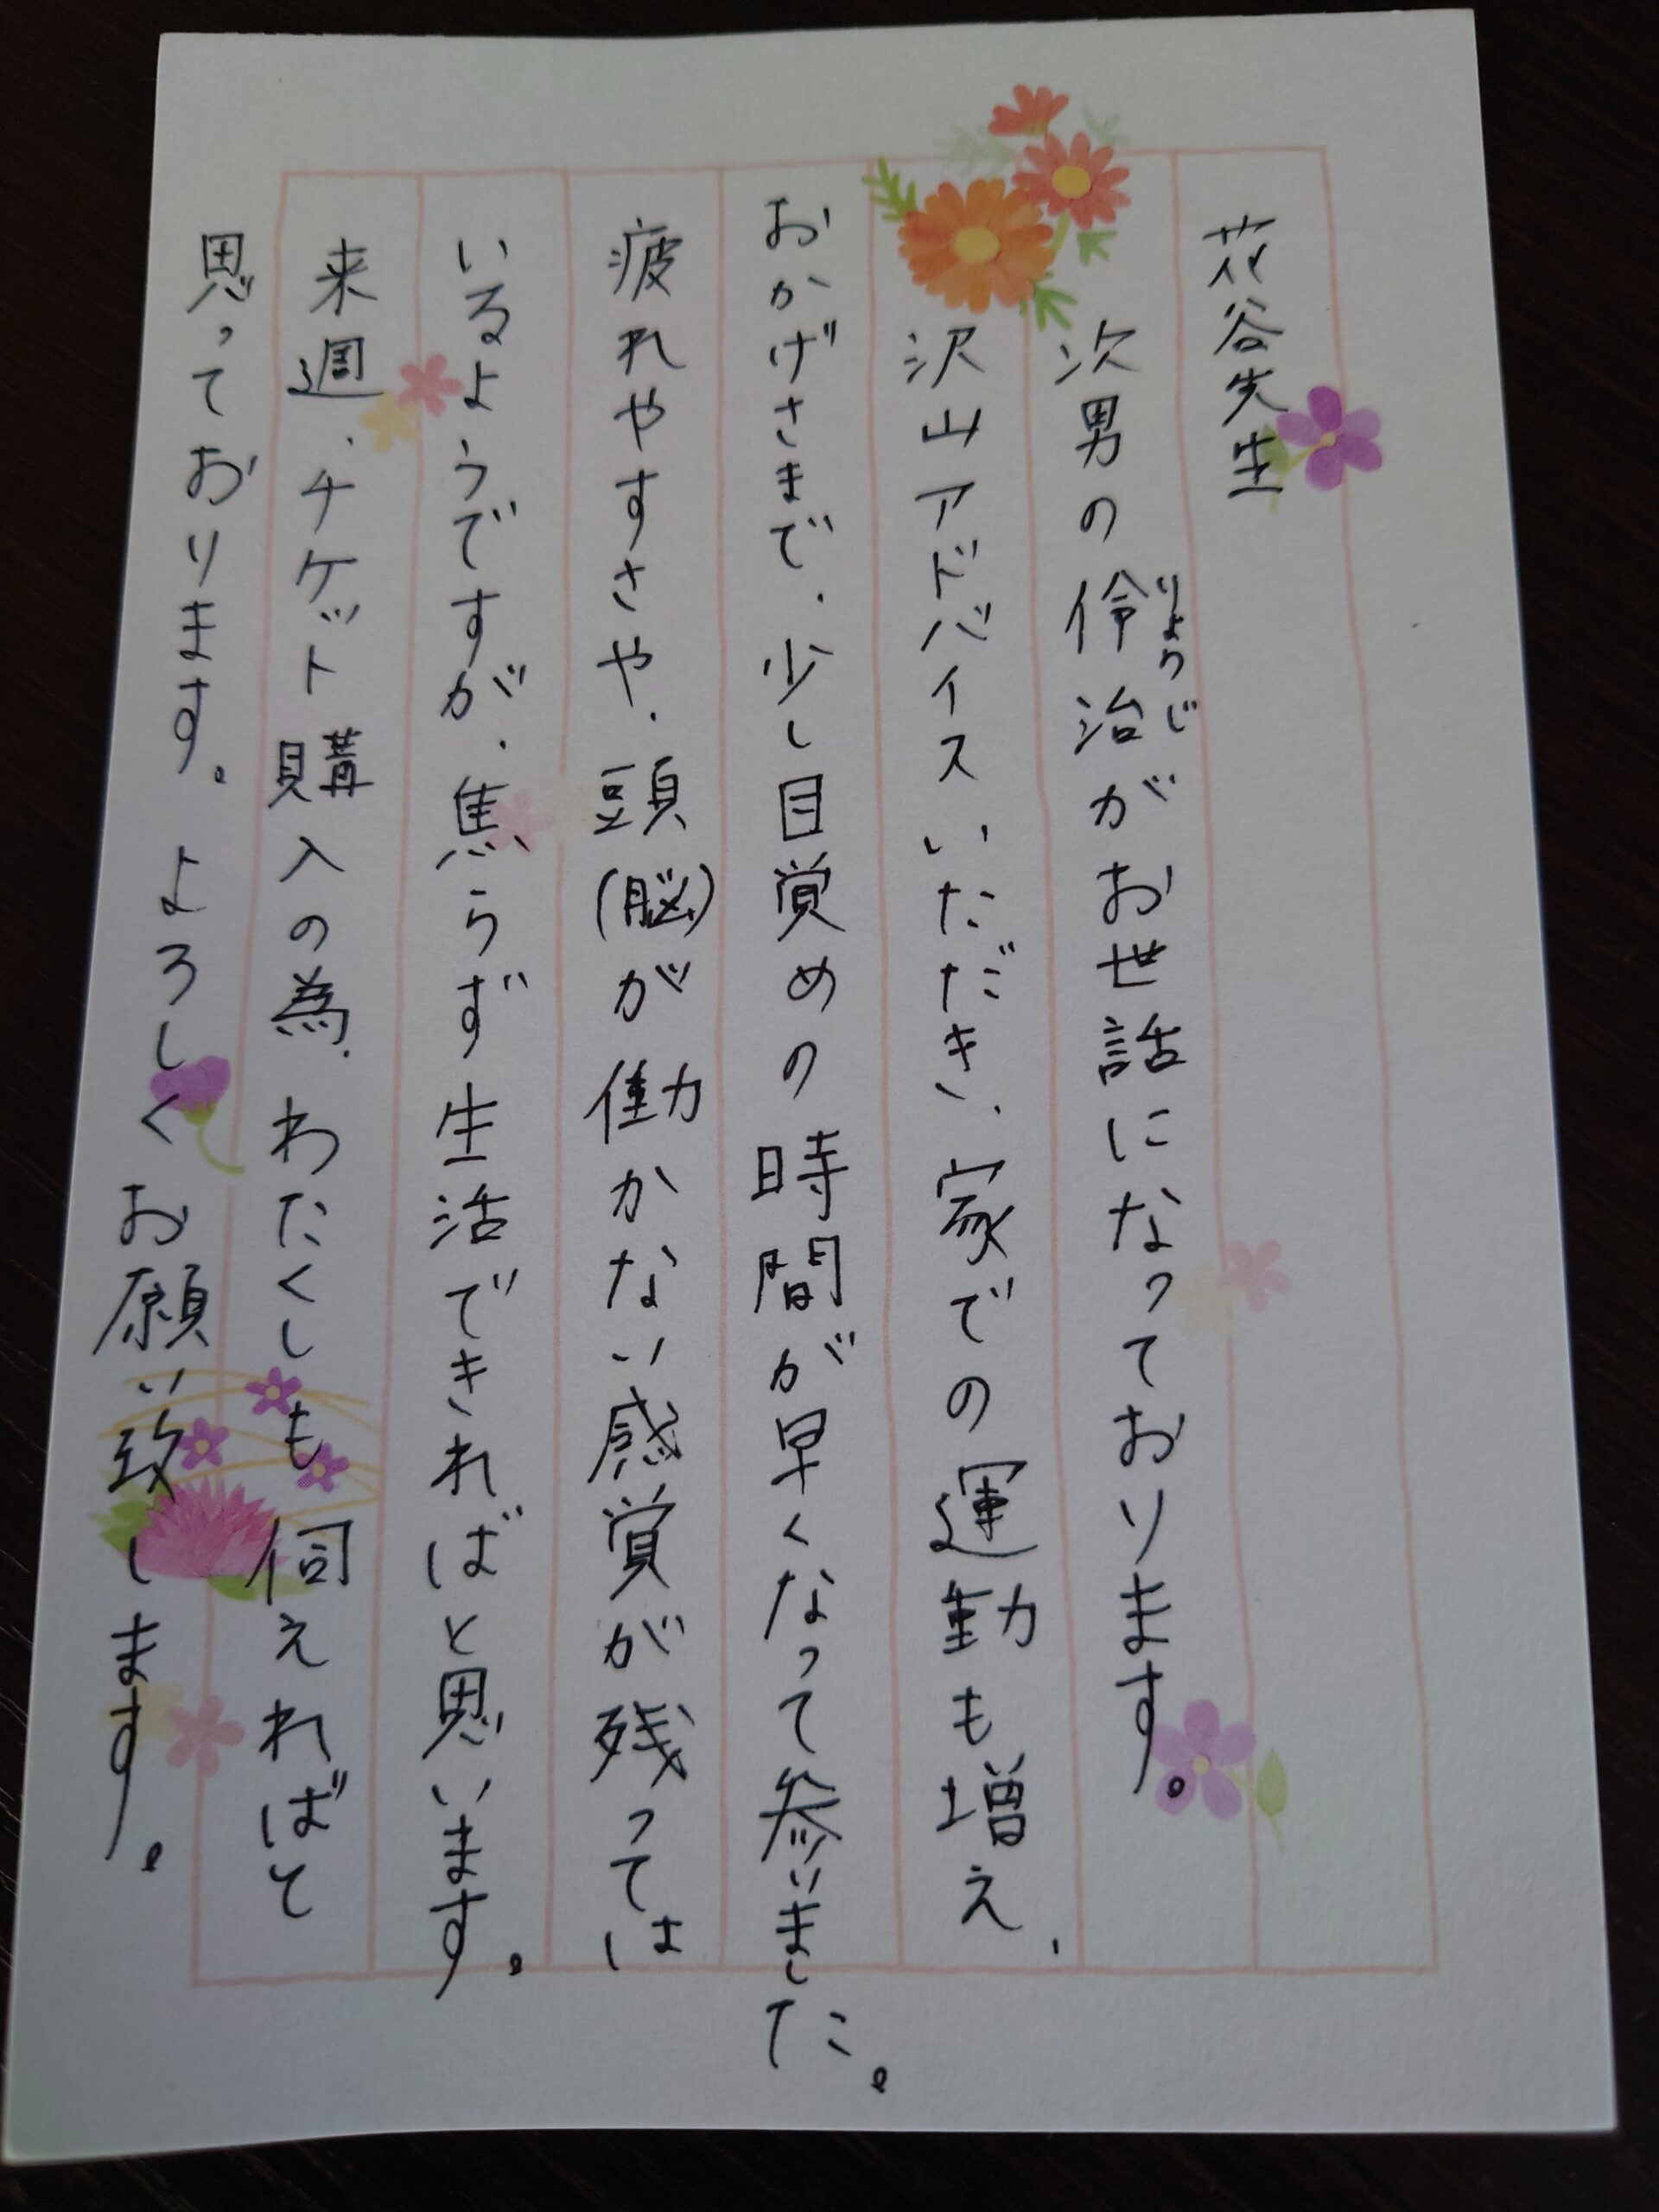 花谷先生
次男の伶治がお世話になっております。
りょうじ
沢山アドバイスいただき、家での運動も増え、
おかげさまで、少し目覚めの時間が早くなって参いました。
疲れやすさや、頭(脳)が働かない感覚が残っては
いるようですが、焦らず生活できればと思います。
来週、チケット購入の為、わたくしも伺えればと
思っております。よろしくお願い致します。